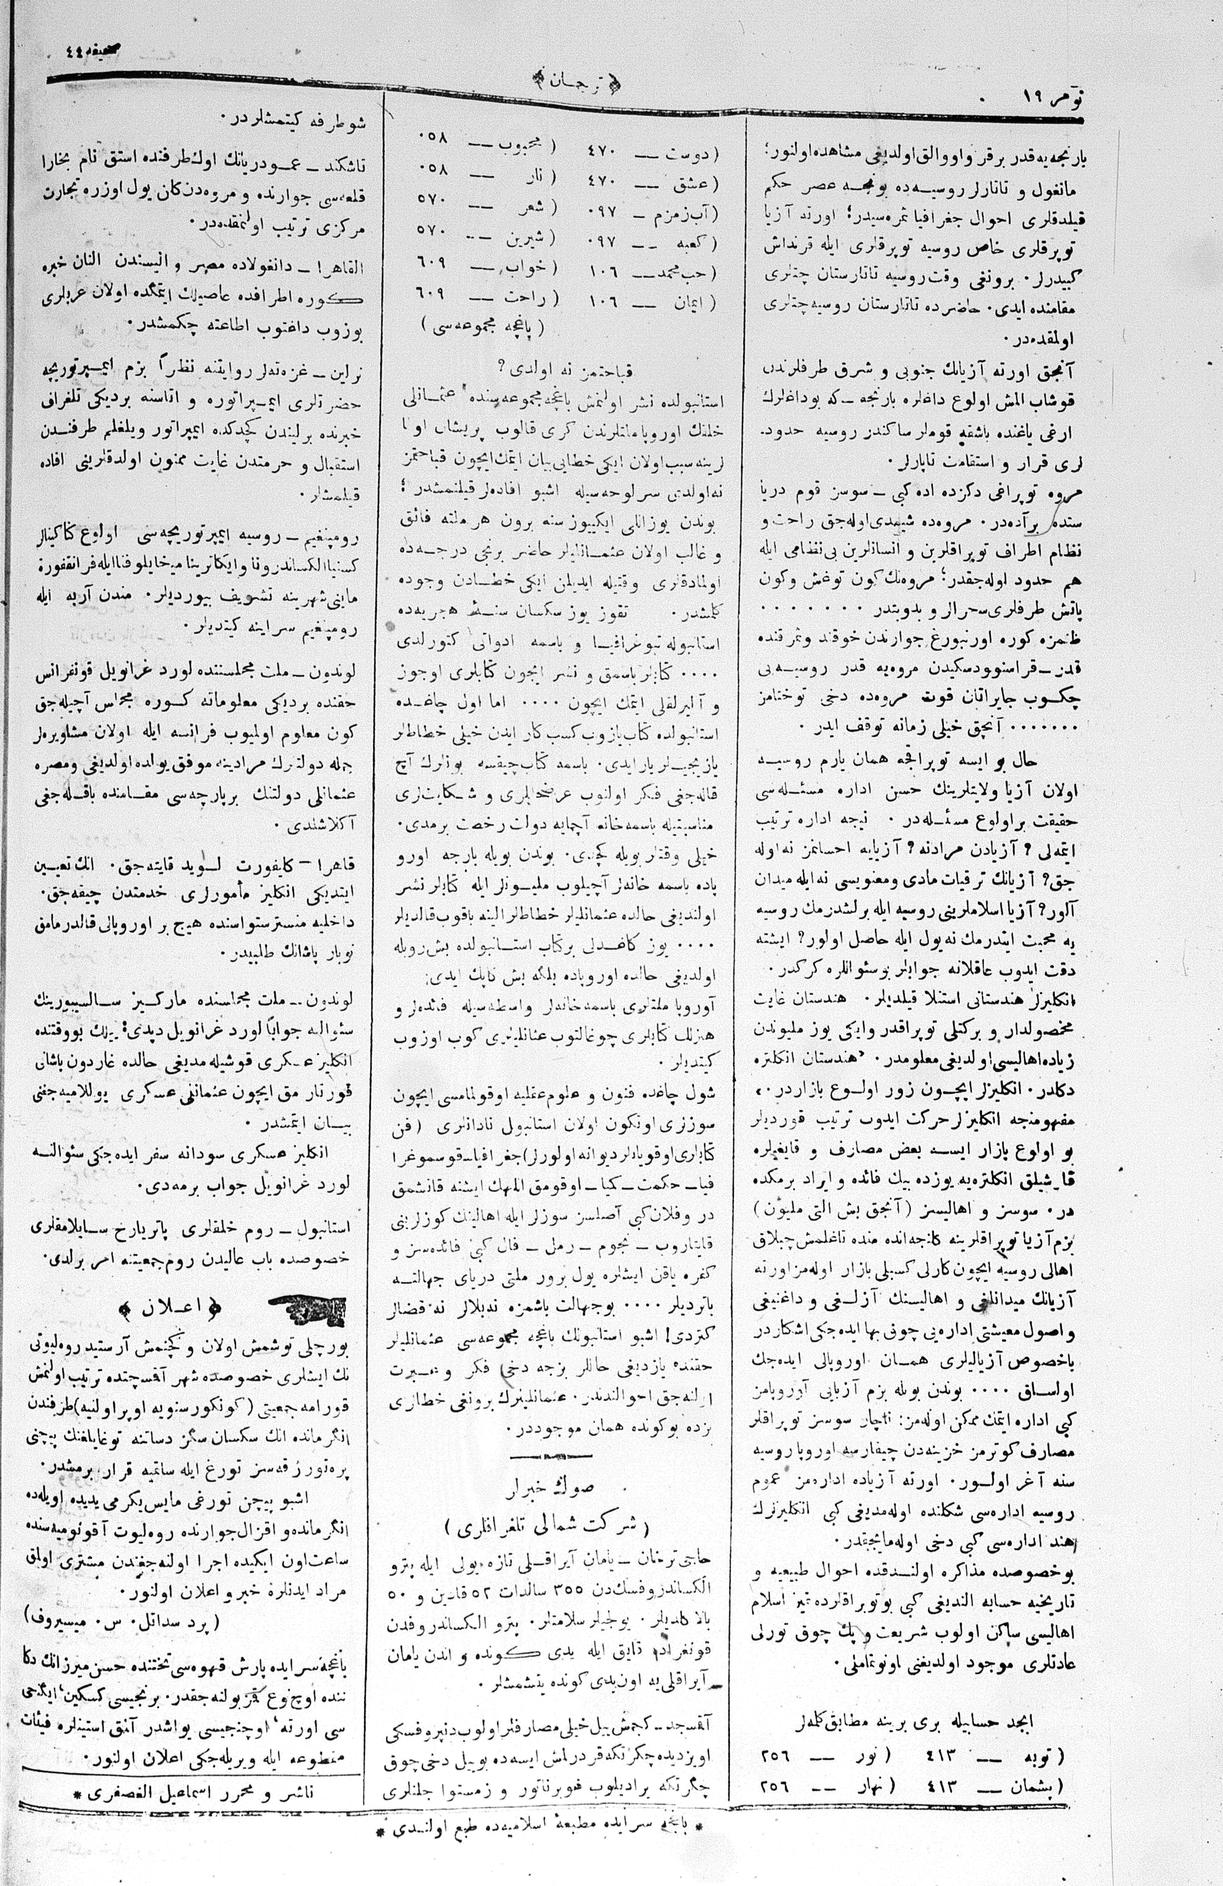 نومر ١٩
﴿ ترجمان ﴾
صحیفه ٤٤
یارنجه‌یه قدر برقر و اووالق اولدیغی مشاهده اولنور؛
مانغول و تاتارلر روسیه‌ده بونجه عصر حکم
قیلدقلری احوال جغرافیا ثمره‌سیدر؛ اورته آزیا
توپرقلری خاص روسیه توپرقلری ایله قرنداش
کبیدرلر. برونغی وقت روسیه تاتارستان چتلری
مقامنده ایدی. حاضرده تاتارستان روسیه چتلری
اولمقده‌در.
آنجق اورته آزیانك جنوبی و شرق طرفلرندن
قوشاب المش اولوغ داغلره یارنجه — که بوداغلرك
ارغی یاغنده باشقه قوملر ساکندر روسیه حدود.
لری قرار و استقامت تاپارلر.
مروه توپراغی دکزده اده کبی — سوسز قوم دریا
سنده برآده‌در. مروه‌ده شیمدی اوله‌جق راحت و
نظام اطراف توپراقلرین و انسانلرین بی نظامی ایله
هم حدود اوله‌جقدر؛ مروه‌نك کون توغش وکون
باتش طرفلری سحرالر و بدویتدر . . . . . . .
ظنمزه کوره اورنبورغ جوارندن خوقند و ثمرقنده
قدر — قراسنوودسکیدن مروه‌یه قدر روسیه‌یی
چکوب جایراقان قوت مروه‌ده دخی توختامز
. . . . . . . آنجق خیلی زمانه توقف ایدر .
حال بو ایسه توپراقجه همان یارم روسیه
اولان آزیا ولایتلرینك حسن اداره مسئله‌سی
حقیقت براولوغ مسئله‌در . نیجه اداره ترتیب
ایتمه‌لی؟ آزیادن مرادنه؟ آزیایه احسانمز نه اوله
جق؟ آزیانك ترقیات مادی ومعنویسی نه ایله میدان
آلور؟ آزیا اسلاملرینی روسیه ایله برلشدرمك روسیه
یه محبت ایتدرمك نه یول ایله حاصل اولور؟ ایشته
دقت ایدوب عاقلانه جوابلر بوسئواللره کرکدر.
انکلیزلر هندستانی استیلا قیلدیلر. هندستان غایت
محصولدار و برکتلی توپراقدر وایکی یوز ملیوندن
زیاده اهالیسی اولدیغی معلومدر. «هندستان انکلتره
دکلدر. انکلیزلر ایچون زور اولوغ بازاردر.»
مفهومنجه انکلیزلر حرکت ایدوب ترتیب قوردیلر
بو اولوغ بازار ایسه بعض مصارف و قایغیلره
قارشیلق انکلتره‌یه یوزده بیك فائده و ایراد برمکده
در. سوسز و اهالیسز (آنجق بش التی ملیون)
بزم آزیا توپراقلرینه کلنجه‌انده منده تاغلمش چیپلاق
اهالی روسیه ایچون کارلی کسبلی بازار اوله‌مز اورته
آزیانك میدانلغی و اهالیسنك آزلغی و داغنیغی
واصول معیشتی اداره‌یی چوق بها ایده‌جکی اشکاردر
باخصوص آزیالیلری همان اوروپالی ایده‌جك
اولساق . . . . بوندن بویله بزم آزیایی آوروپامز
کبی اداره ایتمك ممکن اوله‌مز: ناچار سوسز توپراقلر
مصارف کوترمز خزینه‌دن چیقارسه اوروپا روسیه
سنه آغر اولور. اورته آزیاده اداره‌مز عموم
روسیه اداره‌سی شکلنده اوله‌مدیغی کبی انکلیزلرك
هند اداره‌سی کبی دخی اوله‌مایجقدر.
بوخصوصده مذاکره اولندقده احوال طبیعیه و
تاریخیه حسابه الندیغی کبی بوتوپراقلرده تمیز اسلام
اهالیسی ساکن اولوب شریعت و پك چوق تورلی
عادتلری موجود اولدیغنی اونوتماملی.
ابجد حسابیله بری برینه مطابق کلمه‌لر
(توبه — ٤١٣ (نور — ٢٥٦
(پشمان — ٤١٣ (نهار — ٢٥٦
(دوست — ٤٧٠ (محبوب — ٠٥٨
(عشق — ٤٧٠ (نار — ٠٥٨
(آب زمزم — ٠٩٧ (شعر — ٥٧٠
(کعبه — ٠٩٧ (شیرین — ٥٧٠
(حب محمد — ١٠٦ (خواب — ٦٠٩
(ایمان — ١٠٦ (راحت — ٦٠٩
(باغچه مجموعه‌سی)
قباحتمز نه اولدی؟
استانبولده نشر اولنمش باغچه مجموعه‌سنده عثمانلی
خلقنك اوروپا ملتلرندن کری قالوب پریشان اولما
لرینه سبب اولان ایکی خطایی بیان ایتمك ایچون قباحتمز
نه اولدی سرلوحه‌سیله اشبو افاده‌لر قیلنمشدر؛
بوندن یوز اللی ایکییوز سنه برون هر ملته فائق
و غالب اولان عثمانلیلر حاضر برنجی درجه‌ده
اولمادقلری وقتیله ایدیلن ایکی خطادن وجوده
کلمشدر. تقوز یوز سکسان سنهٔ هجریه‌ده
استانبوله تیوغرافیا و باصمه ادواتی کتورلدی
. . . . کتابلر باسمق و نشر ایچون کتابلری اوجوز
و آلیرلقلی ایتمك ایچون . . . . اما اول چاغده
استانبولده کتاب یازوب کسب کار ایدن خیلی خطاطلر
یازیجیلر یار ایدی. باسمه کتاب چیقسه بونلرك آچ
قاله‌جغی فکر اولنوب عرضحاللری و شکایتلری
مناسبتیله باسمه‌خانه آچمایه دولت رخصت برمدی.
خیلی وقتلر بویله کچدی. بوندن بویله یارجه اورو
پاده باسمه خانه‌لر آچیلوب ملیونلر ایله کتابلر نشر
اولندیغی حالده عثمانلیلر خطاطلر الینه باقوب قالدیلر
. . . . یوز کاغدلی برکتاب استانبولده بش روبله
اولدیغی حالده اوروپاده بلکه بش کاپك ایدی.
آوروپا ملتلری باسمه‌خانه‌لر واسطه‌سیله فنده‌لر و
هنرلك کتابلری چوغالتوب عثمانلیلری کوب اوزوب
کیتدیلر.
شول چاغده فنون و علوم عقلیه اوقولمامسی ایچون
سوزلری اوتکون اولان استانبول نادانلری (فن
کتابلری اوقویانلر دیوانه اولورلر) جغرافیا — قوسموغرا
فیا — حکمت — کیمیا — اوقومق اللهك ایشنه قاتشمق
در وفلان کبی آصلسز سوزلر ایله اهالینك کوزلرینی
قاپتاروب — نجوم — رمل — فال کبی فائده‌سز و
کفره یاقن ایشلره یول برور ملتی دریای جهالته
باتردیلر . . . . بوجهالت باشمزه نه‌بلالر نه قضالر
کتردی! اشبو استانبولنك باغچه مجموعه‌سی عثمانلیلر
حقنده یازدیغی حاللر بزجه دخی فکر و عبرت
اولنه‌جق احوالدندر. عثمانلیلرك برونغی خطالری
بزده بوکونده همان موجوددر.
صوك خبرلر
(شرکت شمالی تلغرافلری)
حاجی ترخان — یامان آیراقلی تازه یولی ایله پترو
الکساندروفسك‌دن ٣٥٥ سالدات ٥٢ قادین و ٥٠
بالا کلدیلر. یولجیلر سلامتلر. پترو الکساندروفدن
قونغراده قایق ایله یدی کونده و اندن یامان
آیراقلی‌یه اون‌یدی کونده یتشمشلر.
آقمسجد — کچمش ییل خیلی مصارفلر اولوب دنپروفسکی
اویزدیده چکرتکه قردرلمش ایسه‌ده بوییل دخی چوق
چگرتکه برادیلوب غوبرناتور و زمستوا جلنلری
شوطرفه کیتمشلردر.
تاشکند — عمودریانك اوك طرفنده استق نام بخارا
قلعه‌سی جوارنده و مروه‌دن کان یول اوزره تجارت
مرکزی ترتیب اولنمقده‌در.
القاهرا — دانغولاده مصر و الیسندن النان خبره
کوره اطرافده عاصیلك ایتمکده اولان عربلری
بوزوب داغتوب اطاعته چکمشدر.
برلین — غزه‌ته‌لر روایتنه نظراً بزم ایمپرتوریچه
حضرتلری ایمپراتوره و اتاسنه بردیکی تلغراف
خبرنده برلیندن کچدکده ایمپراتور ویلغلم طرفندن
استقبال و حرمتدن غایت ممنون اولدقلرینی افاده
قیلمشلر.
رومپنغیم — روسیه ایمپرتوریچه‌سی اولوغ کناکینالر
کسنیا الکساندرونا وایکاترینا میخایلوفنا ایله فرانقفورة
ماینی شهرینه تشریف بیوردیلر. مندن آرپه ایله
رومپنغیم سراینه کیتدیلر.
لوندون — ملت مجلسنده لورد غرانویل قونفرانس
حقنده بردیکی معلوماته کوره مجلس آچیله‌جق
کون معلوم اولمیوب فرانسه ایله اولان مشاوره‌لر
جمله دولتلرك مرادینه موفق یولده اولدیغی ومصره
عثمانلی دولتنك برپارچه‌سی مقامنده باقله‌جغی
آکلاشلدی.
قاهرا — کلیفورت لوید قایته‌جق. انك تعیین
ایتدیکی انکلیز مأمورلری خدمتدن چیقه‌جق.
داخلیه منسترستواسنده هیچ بر اوروپالی قالدرمامق
نوبار پاشانك طلبیدر.
لوندون — ملت مجلسنده مارکیز سالسبورینك
سئوالنه جواباً لورد غرانویل دیدی: ییلك بووقتنده
انکلیز عسکری قوشیله‌مدیغی حالده غاردون پاشانی
قورتارمق ایچون عثمانلی عسکری یوللامیه‌جغنی
بیان ایتمشدر.
انکلیز عسکری سودانه سفر ایده‌جکی سئوالنه
لورد غرانویل جواب برمه‌دی.
استانبول — روم خلقلری پاتریارخ سایلامقلری
خصوصده باب عالیدن روم جمعیتنه امر برلدی.
﴿ اعلان ﴾
بورچلی توشمش اولان و کچنمش آرستیدر ووه‌لیوتی
نك ایشلری خصوصده شهر آقمسجدده ترتیب اولنمش
قورامه جمعیتی (کونکورسنویه اوپراولنیه) طرفندن
انگرمانده انك سکسان سگز دساتنه توغایلغنك پیچنی
پره‌تورزقه‌سز تورغ ایله ساتمغه قرار برمشدر.
اشبو پیچن تورغی مایس یکرمی یدیده اویله‌ده
انگرمانده و اقزال جوارنده روه‌لیوت آقونومیه‌سنده
ساعت اون ایکیده اجرا اولنه‌جغندن مشتری اولمق
مراد ایدنلره خبر و اعلان اولنور.
(پرد سداتل. س. میسیروف)
باغچه‌سرایده پارش قهوه‌سی تختنده حسن میرزانك دکا
ننده اوچ نوع قز بولنه‌جقدر. برنجیسی کسکین، ایکنجی
سی اورته، اوچنجیسی یواشدر آنق استینلره فیئات
مقطوعه ایله ویریله‌جکی اعلان اولنور.
ناشر و محرر اسماعیل الغصفری *
* باغچه سرایده مطبعهٔ اسلامیه‌ده طبع اولندی *